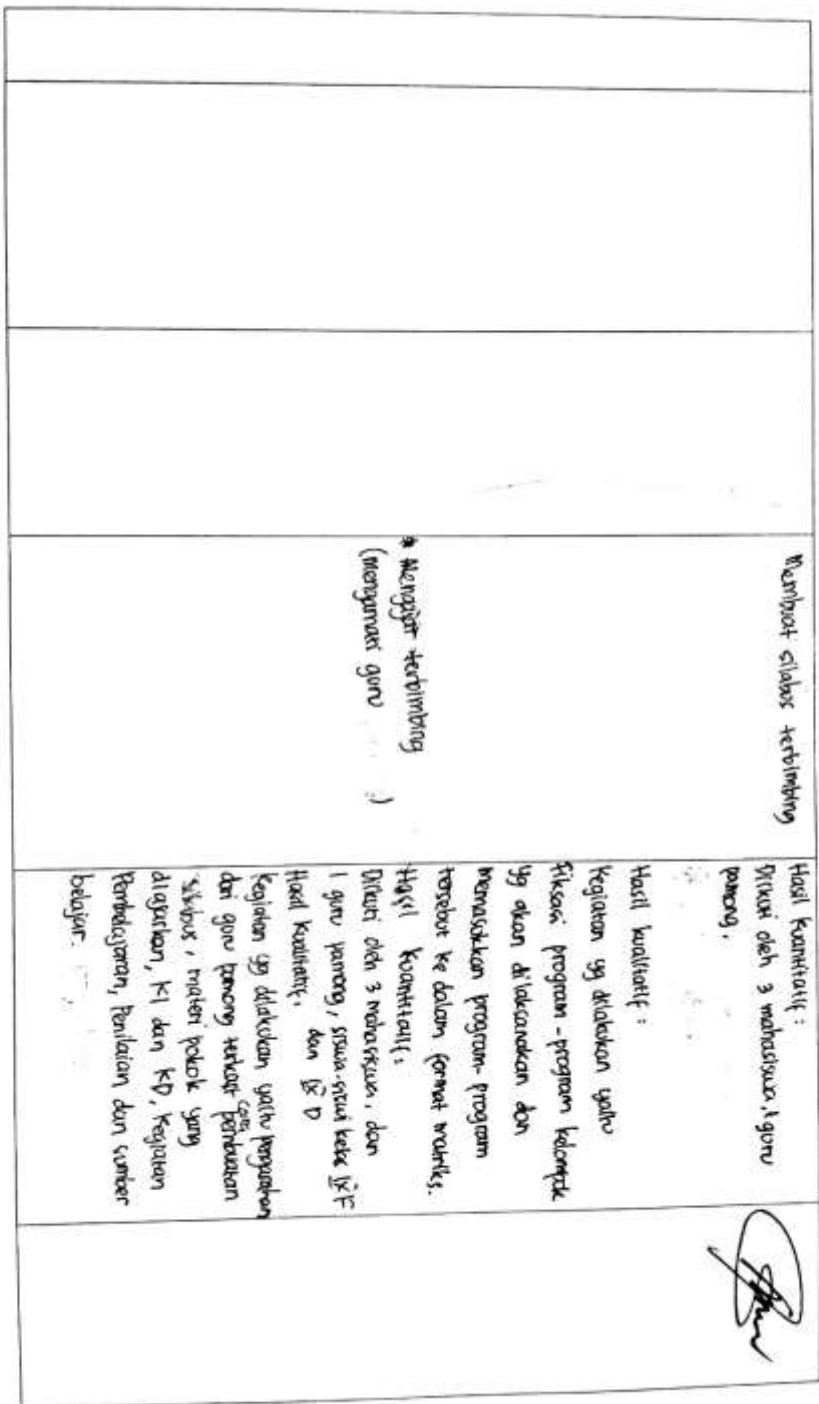 Membuat silabus terbimbing
* Mengajar terbimbing
(mengamati guru )
Hasil kuantitatif :
Diikuti oleh 3 mahasiswa, 1 guru
pamong.
Hasil kualitatif :
Kegiatan yg dilakukan yaitu
Fiksasi program - program kelompok
yg akan dilaksanakan dan
memasukkan program- program
tersebut ke dalam format matriks.
Hasil kuantitatif :
Diikuti oleh 3 mahasiswa, dan
1 guru pamong, siswa-siswi kelas IX F
dan IX D
Hasil kualitatif,
Kegiatan yg dilakukan yaitu pengarahan
dari guru pamong terkait cara pembuatan
silabus, materi pokok yang
diajarkan, KI dan KD, Kegiatan
Pembelajaran, Penilaian dan sumber
belajar.